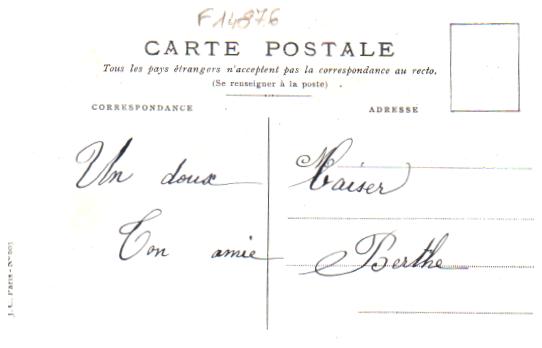 F14876
CARTE POSTALE
Tous les pays étrangers n'acceptent pas la correspondance au recto.
(Se renseigner à la poste)
CORRESPONDANCE
ADRESSE
Un doux Baiser
Ton amie Berthe
J. C. Paris - N° 201